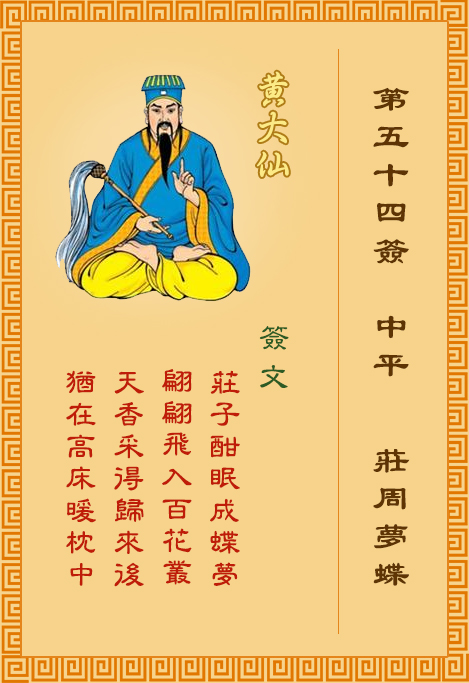 第五十四簽 中平 莊周夢蝶
黃大仙
簽文
莊子酣眠成蝶夢
翩翩飛入百花叢
天香采得歸來後
猶在高床暖枕中